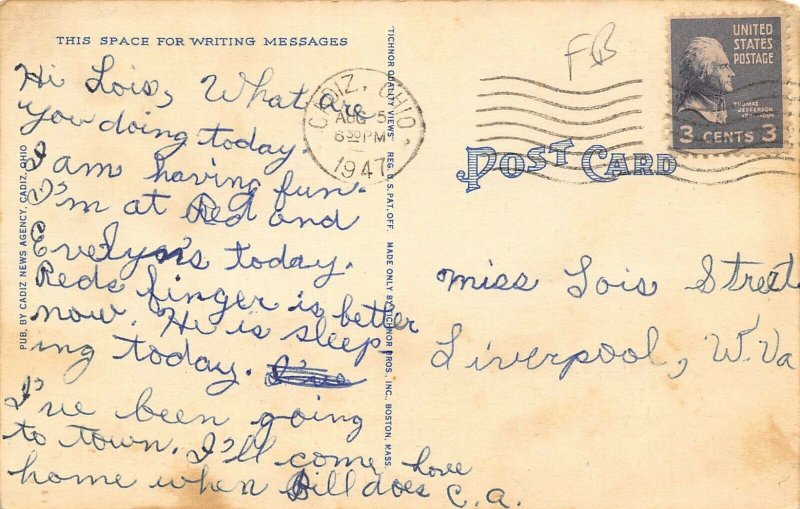 THIS SPACE FOR WRITING MESSAGES
Hi Lois, What are
You doing today.
I am having fun.
I'm at Red and
Evelyn's today.
Reds finger is better
now. He is sleep
ing today.
I've been going
to town. I'll come
home when Bill does
love
C.A.
PUB. BY CADIZ NEWS AGENCY, CADIZ, OHIO
"TICHNOR QUALITY VIEWS" REG. U.S. PAT. OFF. MADE ONLY BY TICHNOR BROS., INC., BOSTON, MASS.
CADIZ, OHIO.
AUG 5
8 30 PM
1947
FB
UNITED
STATES
POSTAGE
THOMAS JEFFERSON
3 CENTS 3
POST CARD
miss Lois Street
Liverpool, W. Va